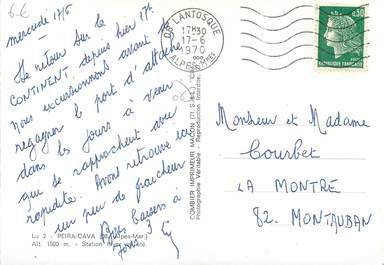 6€
mercredi 17/6
De retour sur le
CONTINENT depuis hier 17h
Nous excursionnons avant de
regagner le port d'attache
dans les jours à venir
qui se rapprochent avec
rapidité. Avons retrouvé ici
un peu de fraicheur
Bons baisers à
tous 3
Lu 2 - PEIRA-CAVA (06 Alpes-Mar.)
Alt. 1500 m. - Station hiver été
COMBIER IMPRIMEUR MACON (71 S.-&-L.)
Photographie Véritable - Reproduction Interdite.
06 LANTOSQUE
17H30
17-6
1970
ALPES MMES
0,30
REPUBLIQUE FRANÇAISE
Monsieur et Madame
Courbet
LA MONTRE
82. MONTAUBAN